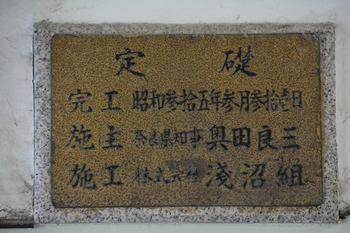 定礎
完工 昭和参拾五年参月参拾壱日
施主 奈良県知事 奥田良三
施工 株式会社 淺沼組